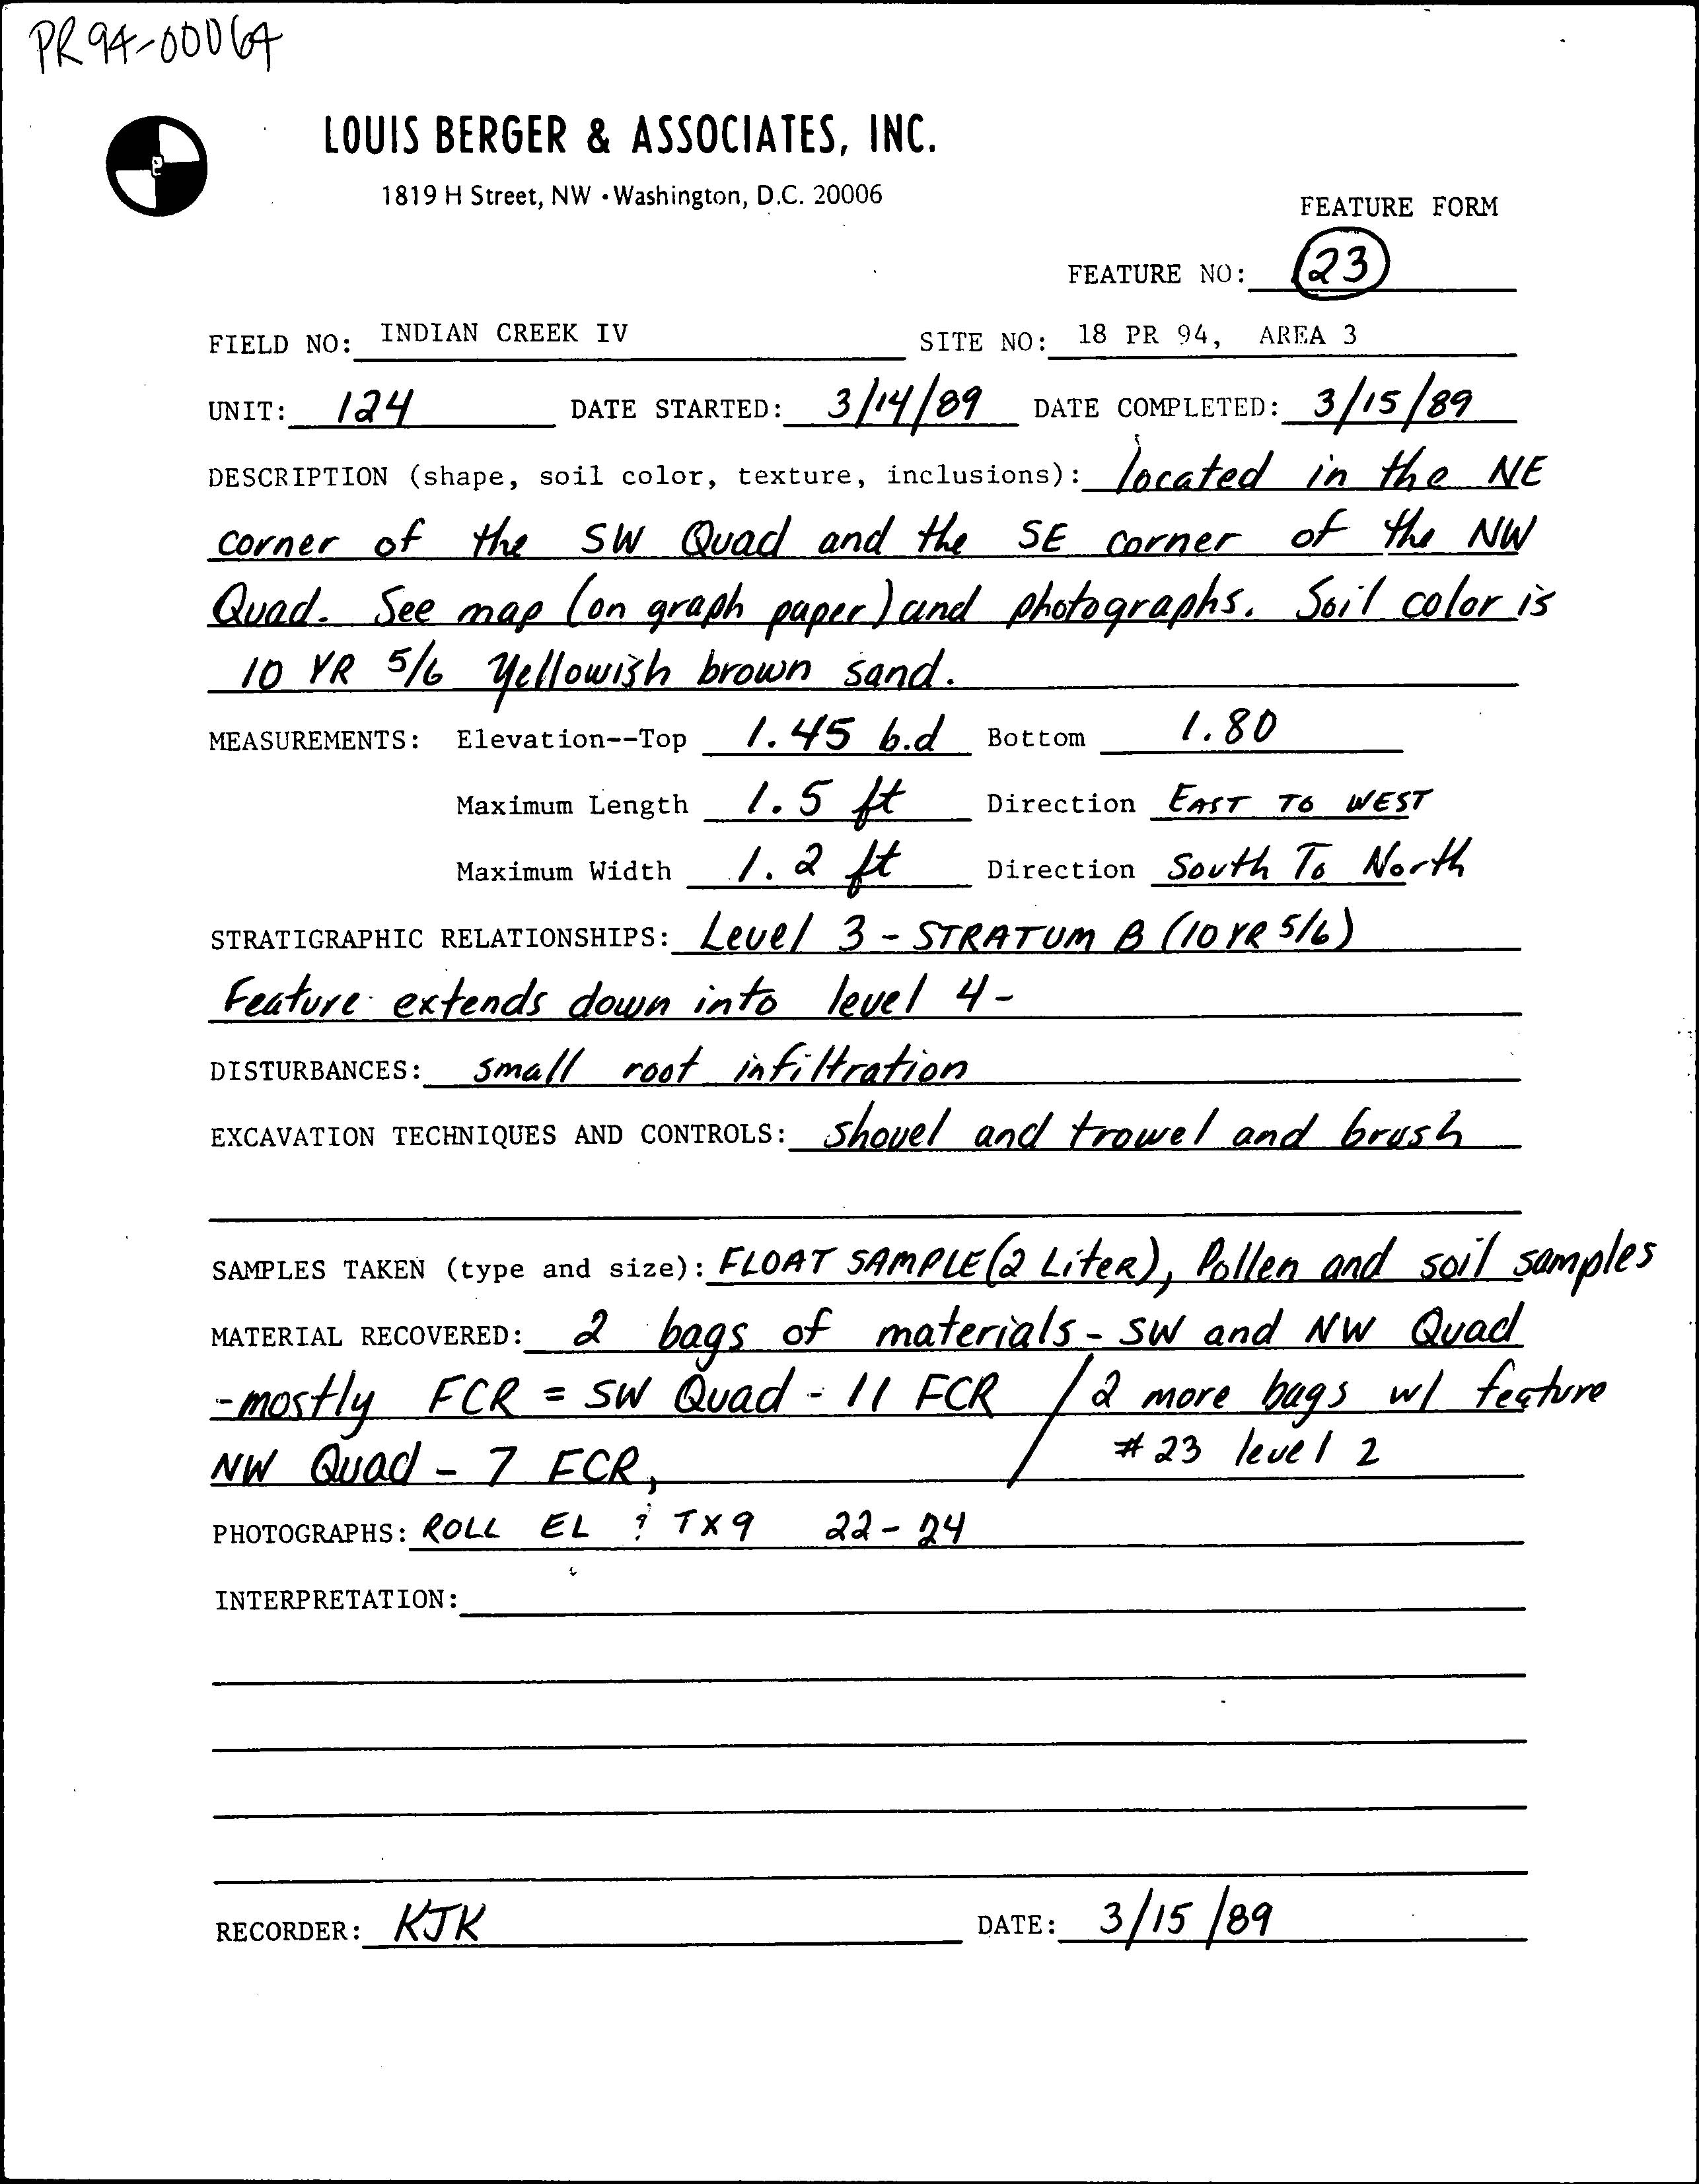 PR 94-00064
LOUIS BERGER & ASSOCIATES, INC.
1819 H Street, NW • Washington, D.C. 20006
FEATURE FORM
FEATURE NO: 23
FIELD NO: INDIAN CREEK IV SITE NO: 18 PR 94, AREA 3
UNIT: 124 DATE STARTED: 3/14/89 DATE COMPLETED: 3/15/89
DESCRIPTION (shape, soil color, texture, inclusions): located in the NE
corner of the SW Quad and the SE corner of the NW
Quad. See map (on graph paper) and photographs. Soil color is
10 YR 5/6 yellowish brown sand.
MEASUREMENTS: Elevation--Top 1.45 b.d Bottom 1.80
Maximum Length 1.5 ft Direction EAST TO WEST
Maximum Width 1.2 ft Direction South To North
STRATIGRAPHIC RELATIONSHIPS: Level 3 - STRATUM B (10 YR 5/6)
Feature extends down into level 4-
DISTURBANCES: small root infiltration
EXCAVATION TECHNIQUES AND CONTROLS: shovel and trowel and brush
SAMPLES TAKEN (type and size): FLOAT SAMPLE (2 LiteR), Pollen and soil samples
MATERIAL RECOVERED: 2 bags of materials - SW and NW Quad
-mostly FCR = SW Quad - 11 FCR / 2 more bags w/ feature
NW Quad - 7 FCR, # 23 level 2
PHOTOGRAPHS: ROLL EL TX9 22-24
INTERPRETATION:
RECORDER: KJK DATE: 3/15/89